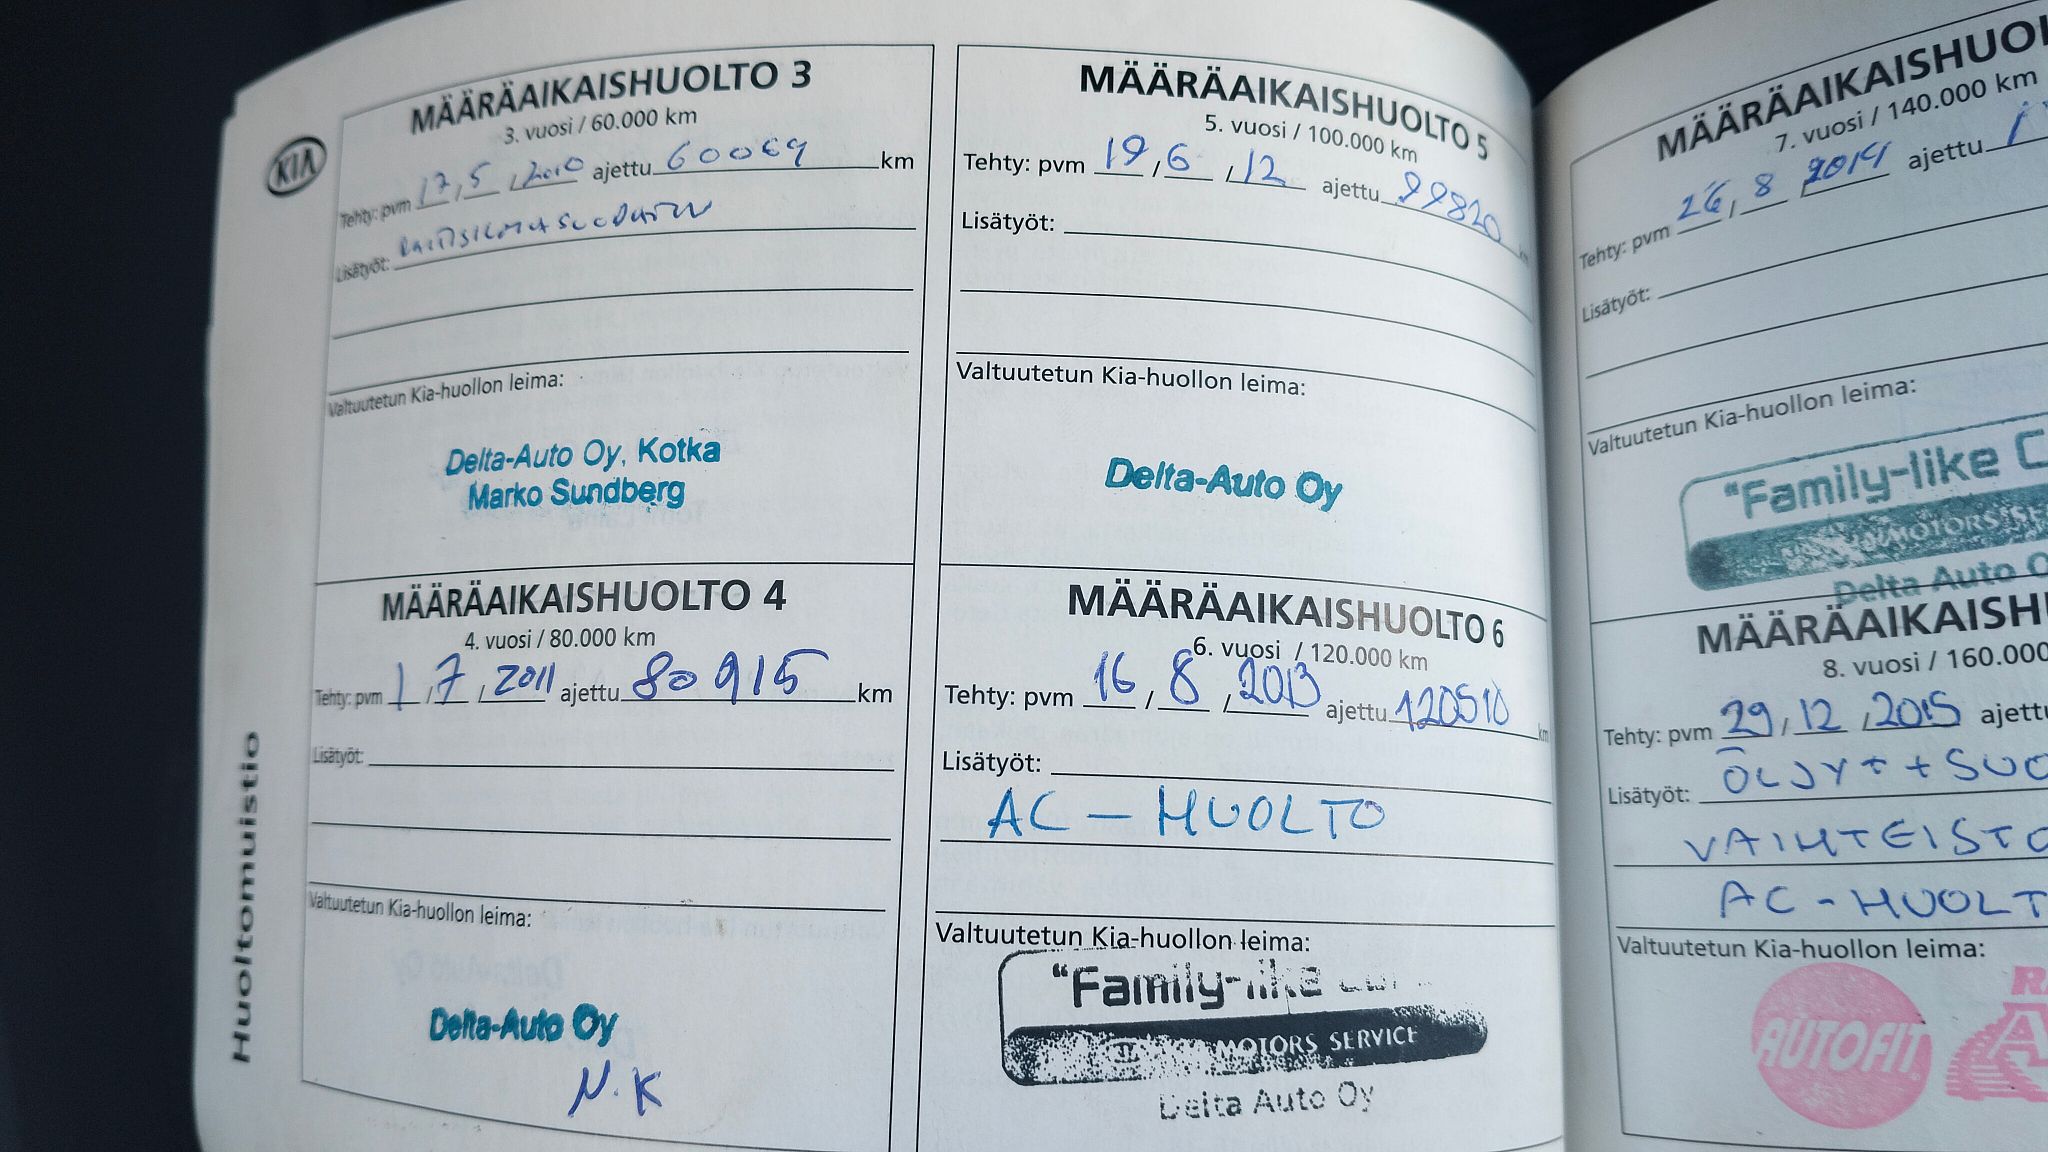 KIA
Huoltomuistio
MÄÄRÄAIKAISHUOLTO 3
3. vuosi / 60.000 km
Tehty: pvm 17,5,2010 ajettu 60069 km
Lisätyöt: RAITISILMASUODATIN
Valtuutetun Kia-huollon leima:
Delta-Auto Oy, Kotka
Marko Sundberg
MÄÄRÄAIKAISHUOLTO 4
4. vuosi / 80.000 km
Tehty: pvm 1,7,2011 ajettu 80915 km
Lisätyöt:
Valtuutetun Kia-huollon leima:
Delta-Auto Oy
N.K
MÄÄRÄAIKAISHUOLTO 5
5. vuosi / 100.000 km
Tehty: pvm 19,6,12 ajettu 99820 km
Lisätyöt:
Valtuutetun Kia-huollon leima:
Delta-Auto Oy
MÄÄRÄAIKAISHUOLTO 6
6. vuosi / 120.000 km
Tehty: pvm 16,8,2013 ajettu 120510 km
Lisätyöt:
AC-HUOLTO
Valtuutetun Kia-huollon leima:
"Family-like
KIA MOTORS SERVICE
Delta Auto Oy
MÄÄRÄAIKAISHUOL
7. vuosi / 140.000 km
Tehty: pvm 26,8,2014 ajettu
Lisätyöt:
Valtuutetun Kia-huollon leima:
"Family-like C
MOTORS SE
Delta Auto O
MÄÄRÄAIKAISH
8. vuosi / 160.000
Tehty: pvm 29,12,2015 ajettu
Lisätyöt: ÖLJYT + SUO
VAIHTEISTO
AC-HUOLT
Valtuutetun Kia-huollon leima:
AUTOFIT